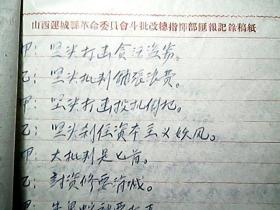 山西運城縣革命委員會斗批改總指揮部匯報記錄稿紙
甲：坚决打击贪污盗劳。
乙：坚决批判铺张浪费。
甲：坚决打击投机倒把。
乙：坚决刹住资本主义妖风。
甲：大批判是七首。
乙：封资修要消灭。